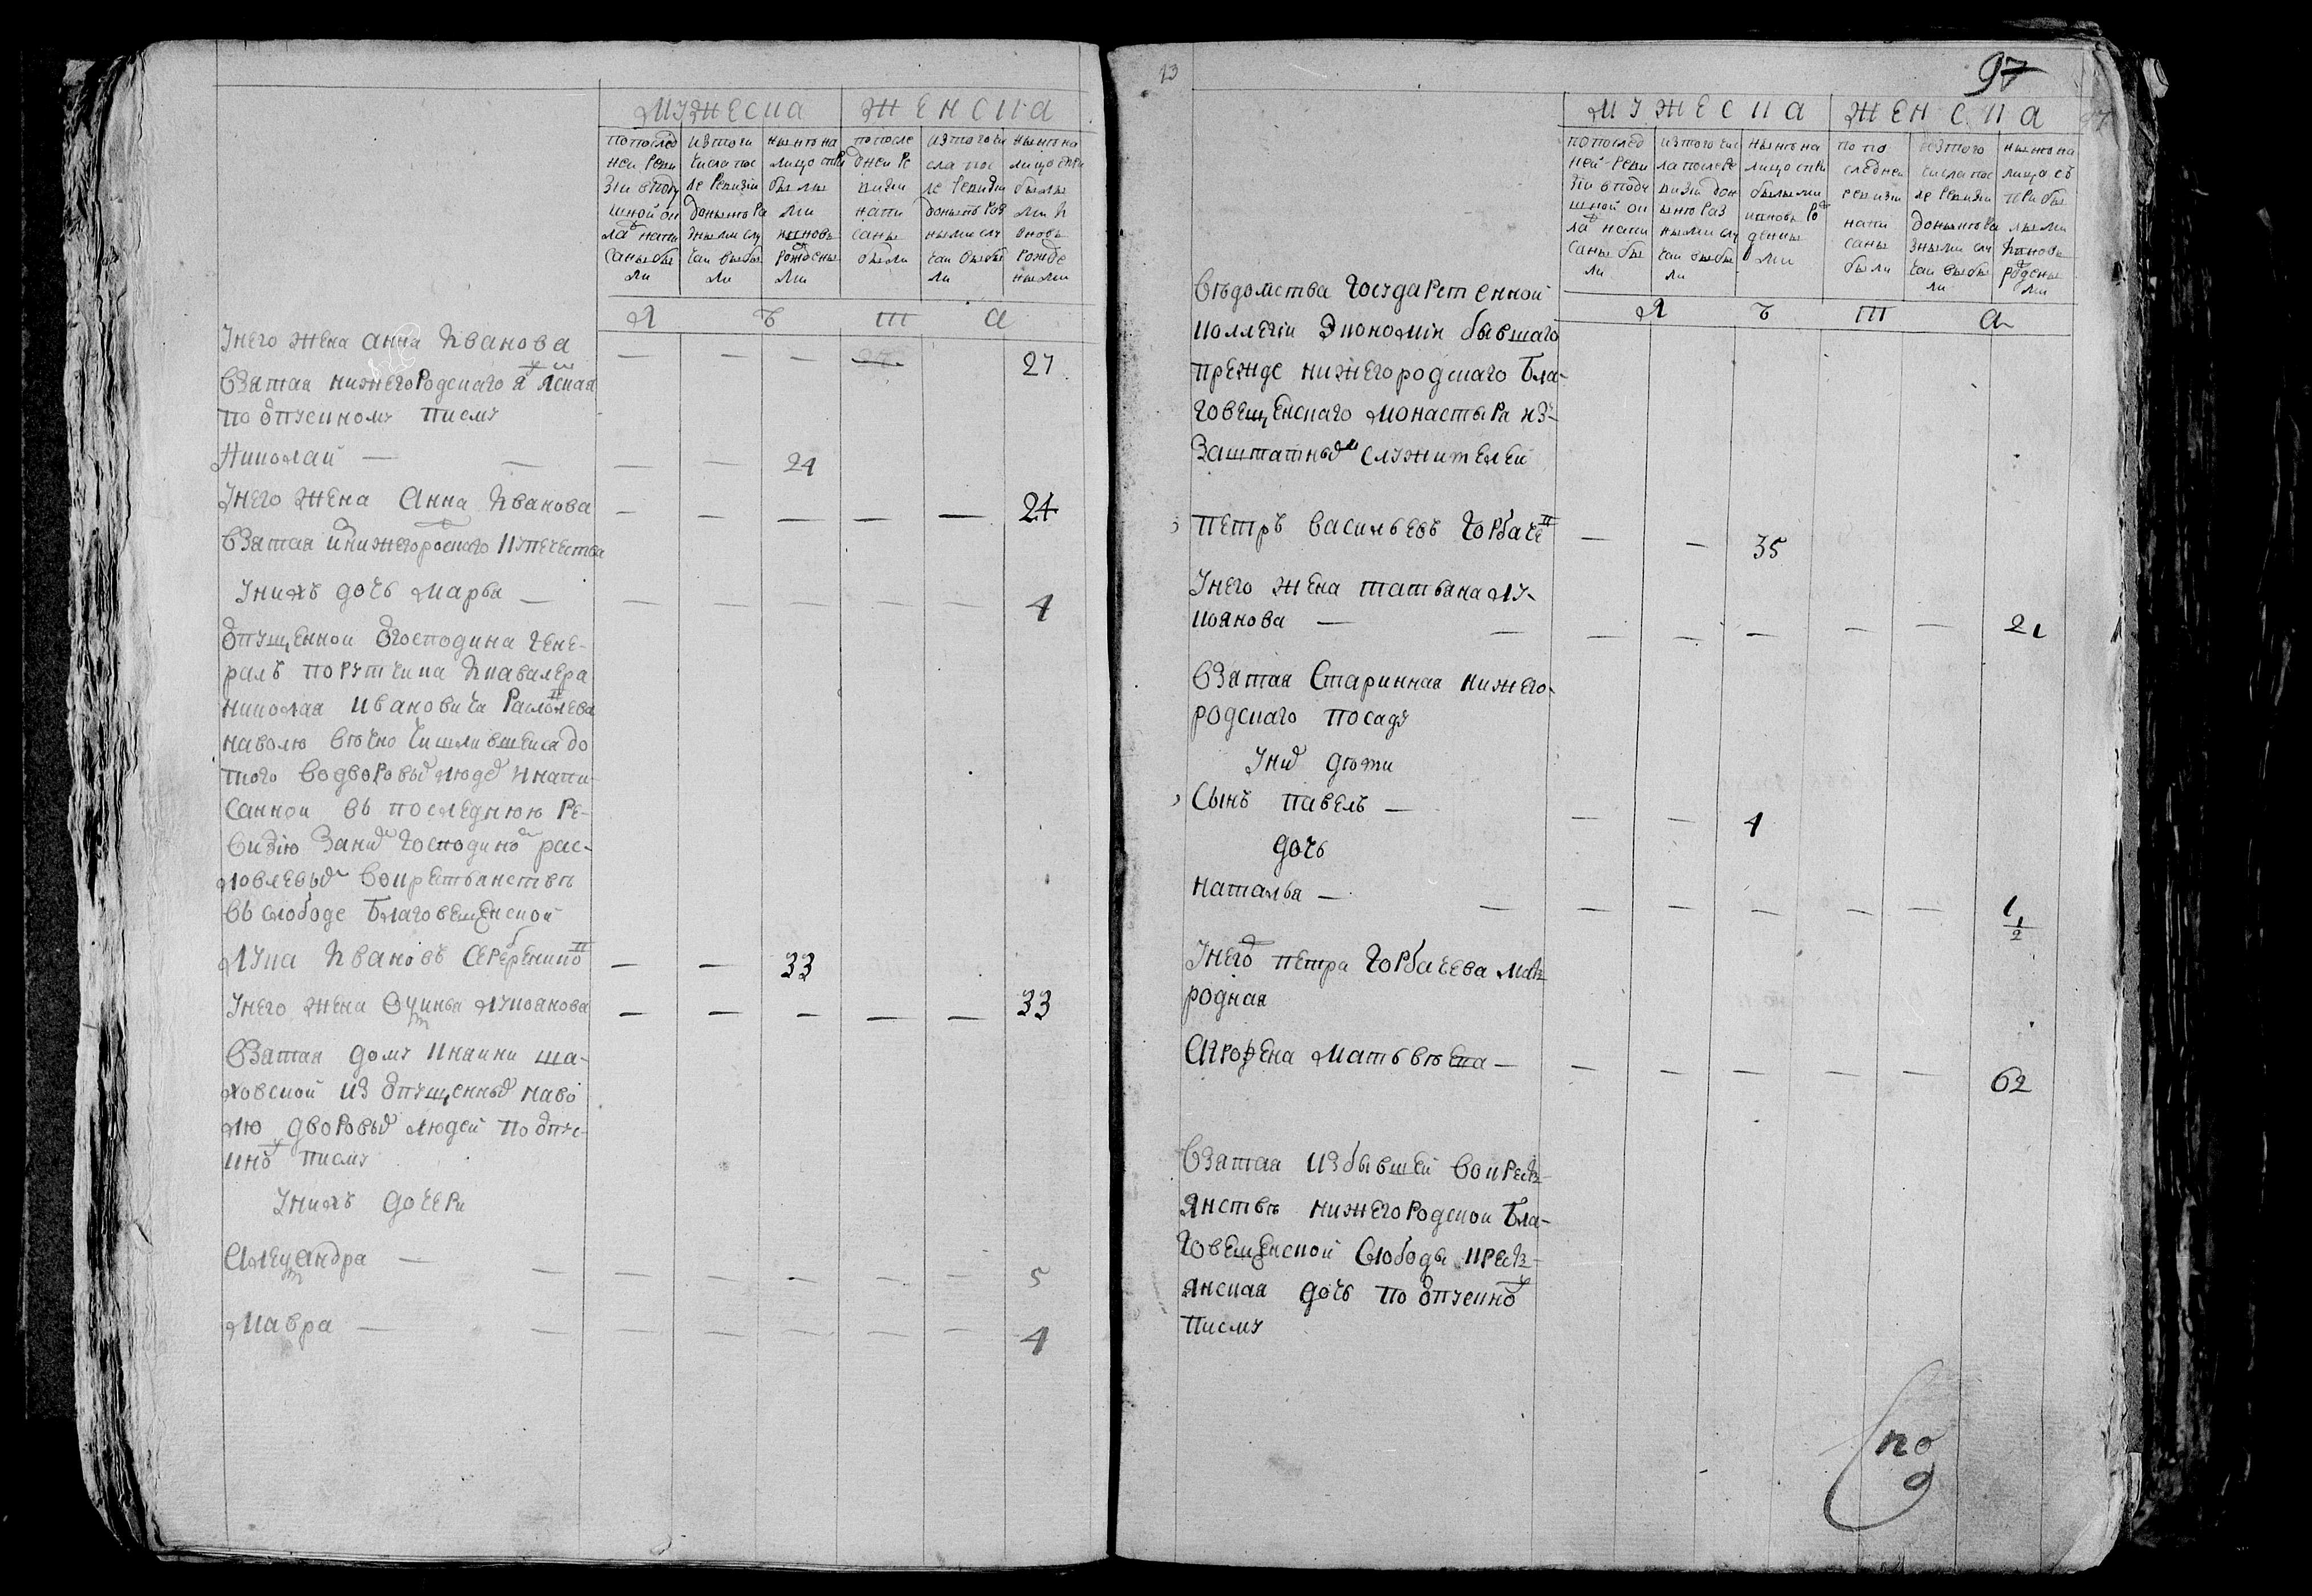 МУЖЕСКА
ЖЕНСКА
попослед
ней Реви
зии вподу
шной ок
ладъ напи
саны бы
ли
изтого
числа пос
ле Ревизiи
доныне ра
зными слу
чаи выбы
ли
ныне на
лицо спри
былы
ми
ивновь
рожденны
ми
попосле
дней Ре
визии
напи
саны
были
изтого чи
сла пос
ле Ревизiи
доныне раз
ными слу
чаи выбы
ли
ныне на
лицо спри
былы
ми и
вновь
рожде
нными
Л Ѣ Т А
Унего жена анна Иванова
— — — 27
взятая нижегородскаго
по отпускному писму
Николай — — — — 24
Унего жена Анна Иванова
— — — — — 24
взятая изнижегородскаго купечества
Унихъ дочь марья —
— — — — — 4
отпущенной отгосподина гене-
ралъ порутчика икавалера
николая ивановича Расловлева
наволю вѣчно числившейся до
того водворовых людех инапи-
санной въ последнюю Ре-
визiю заним господином рас-
ловлевым вокрестьянстве
въ слободе Благовещенской
Лука Ивановъ Серебрениковъ
— — 33
Унего жена Фетинья лукоянова
— — — — — 33
взятая дому княжни ша-
ховской из отпущенных наво
лю дворовых людей по отпус-
кному писму
Унихъ дочери
Александра —
— — — — — — 5
Мавра —
— — — — — — 4
23
97
МУЖЕСКА
ЖЕНСКА
попослед
ней Реви
зiи вподу
шной ок
ладъ напи
саны бы
ли
изтого чис
ла после Ре
визiи дон
ыне раз
ными слу
чаи выбы
ли
ныне на
лицо спри
былыми
ивновь ро
жденны
ми
по по
следней
ревизiи
напи
саны
были
изтого
числа пос
ле Ревизiи
доныне ра
зными слу
чаи выбы
ли
ныне на
лицо съ
прибы
лыми
ивновь
рожденны
ми
Л Ѣ Т А
вѣдомства государственной
коллегiи экономiи бывшаго
прежде нижегородскаго Бла-
говещенскаго монастыря из-
заштатных служителей
Петръ васильевъ Горбачевъ
— — 35
Унего жена татьяна лу-
коянова — —
— — — — — 21
взятая старинная нижего-
родскаго посаду
Уних дѣти
Сынъ павелъ —
— — 4
дочь
наталья — —
— — — — — 1 1/2
Унего петра Горбачева мать
родная
Агрофена матвѣева —
— — — — — 62
взятая избывшей вокресть-
янстве нижегородской Бла-
говещенской слободы кресть-
янская дочь по отпускному
писму
по